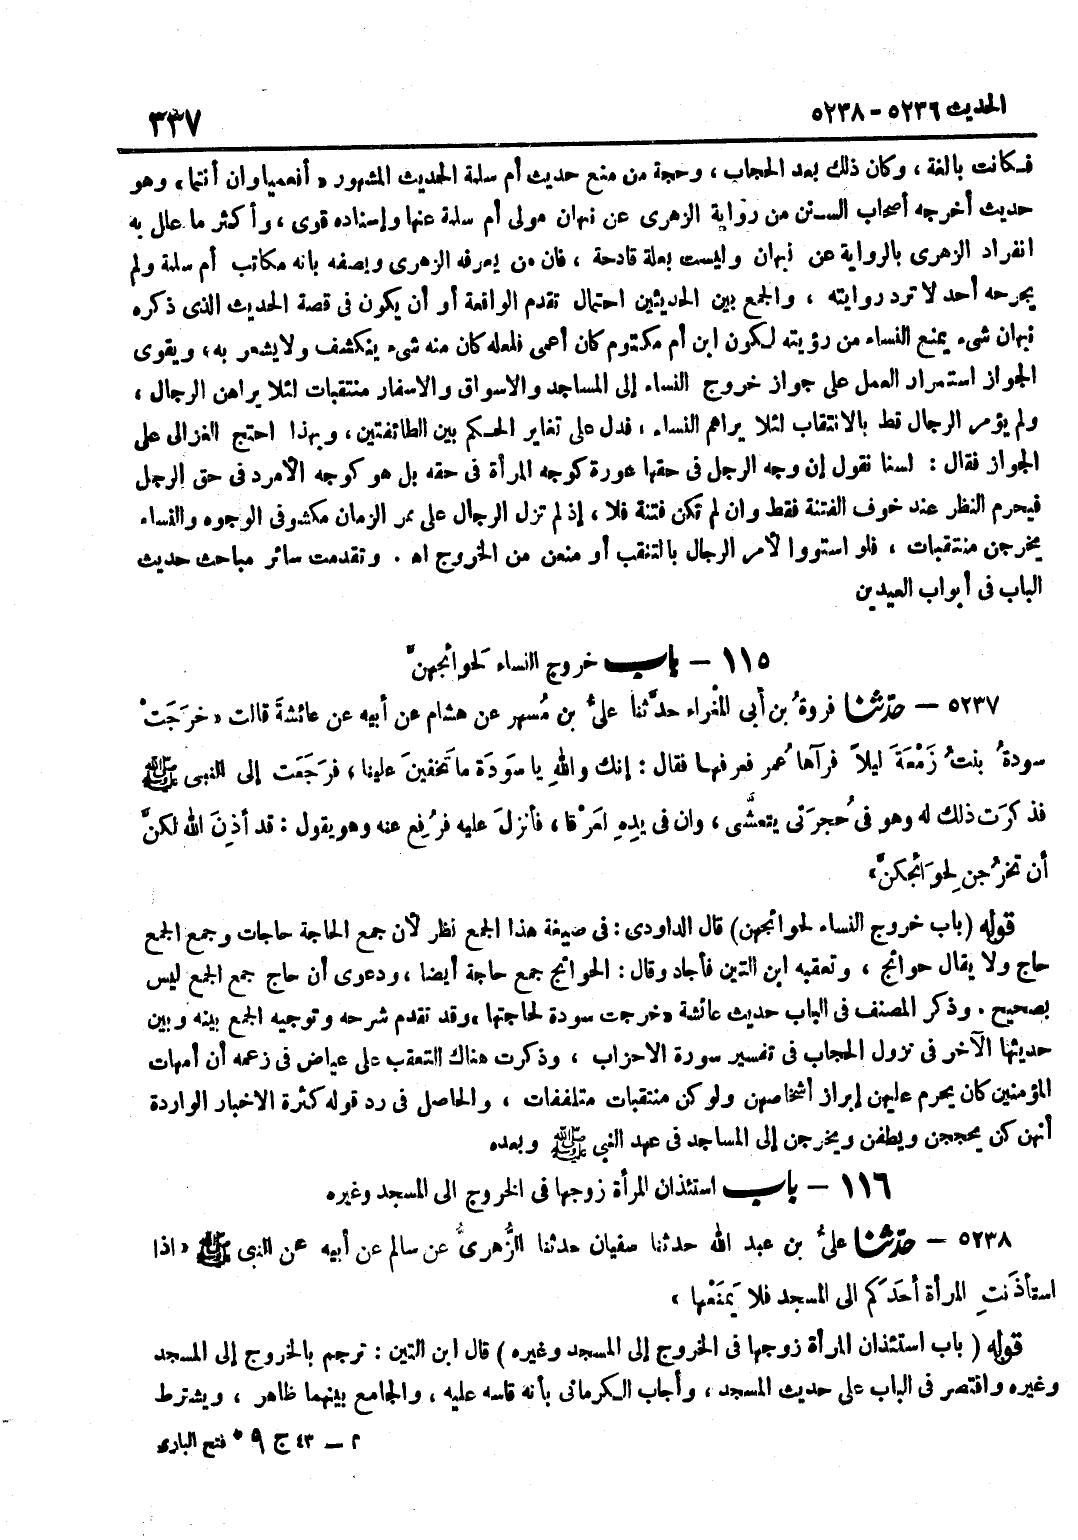 الحديث ٥٢٣٦ - ٥٢٣٨
٣٣٧
فكانت بالغة ، وكان ذلك بعد الحجاب ، وحجة من منع حديث أم سلمة الحديث المشهور « أفعمياوان أنتما » وهو
حديث أخرجه أصحاب السنن من رواية الزهرى عن نبهان مولى أم سلمة عنها وإسناده قوى ، وأكثر ما علل به
انفراد الزهرى بالرواية عن نبهان وليست بعلة قادحة ، فان من يعرفه الزهرى ويصفه بانه مكاتب أم سلمة ولم
يجرحه أحد لا ترد روايته ، والجمع بين الحديثين احتمال تقدم الواقعة أو أن يكون فى قصة الحديث الذى ذكره
نبهان شىء يمنع النساء من رؤيته لكون ابن أم مكتوم كان أعمى فلعله كان منه شىء ينكشف ولا يشعر به ، ويقوى
الجواز استمرار العمل على جواز خروج النساء إلى المساجد والاسواق والاسفار منتقبات لئلا يراهن الرجال ،
ولم يؤمر الرجال قط بالانتقاب لئلا يراهم النساء ، فدل على تغاير الحكم بين الطائفتين ، وبهذا احتج الغزالى على
الجواز فقال : لسنا نقول إن وجه الرجل فى حقها عورة كوجه المرأة فى حقه بل هو كوجه الأمرد فى حق الرجل
فيحرم النظر عند خوف الفتنة فقط وان لم تكن فتنة فلا ، إذ لم تزل الرجال على ممر الزمان مكشوفى الوجوه والنساء
يخرجن منتقبات ، فلو استووا لأمر الرجال بالتنقب أو منعن من الخروج اه . وتقدمت سائر مباحث حديث
الباب فى أبواب العيدين
١١٥ - باب خروج النساء لحوائجهنَّ
٥٢٣٧ - حدّثنا فروةُ بن أبى المَغْراء حدَّثنا علىُّ بن مُسهِر عن هشام عن أبيه عن عائشةَ قالت « خرَجَتْ
سودةُ بنتُ زَمْعَةَ ليلاً فرآها عُمر فعرفها فقال : إنك واللهِ يا سَودَة ما تَخفَينَ علينا ، فرَجَعَت إلى النبى ﷺ
فذكرَت ذلك له وهو فى حُجرَتى يتعشَّى ، وان فى يدِهِ لعَرْقا ، فأنزلَ عليه فرُفِع عنه وهو يقول : قد أذِنَ الله لكنَّ
أن تخرُجن لِحوَائجكنَّ »
قوله (باب خروج النساء لحوائجهن) قال الداودى : فى صيغة هذا الجمع نظر لأن جمع الحاجة حاجات وجمع الجمع
حاج ولا يقال حوائج ، وتعقبه ابن التين فأجاد وقال : الحوائج جمع حاجة أيضا ، ودعوى أن حاج جمع الجمع ليس
بصحيح . وذكر المصنف فى الباب حديث عائشة « خرجت سودة لحاجتها ، وقد تقدم شرحه وتوجيه الجمع بينه وبين
حديثها الآخر فى نزول الحجاب فى تفسير سورة الاحزاب ، وذكرت هناك التعقب على عياض فى زعمه أن أمهات
المؤمنين كان يحرم عليهن إبراز أشخاصهن ولو كن منتقبات متلففات ، والحاصل فى رد قوله كثرة الاخبار الواردة
أنهن كن يحججن ويطفن ويخرجن إلى المساجد فى عهد النبى ﷺ وبعده
١١٦ - باب استئذان المرأة زوجها فى الخروج الى المسجد وغيره
٥٢٣٨ - حدّثنا علىُّ بن عبد الله حدثنا سفيان حدثنا الزُّهرىُّ عن سالم عن أبيه عن النبى ﷺ « اذا
استأذَنتِ المرأة أحدَكم الى المسجد فلا يَمنَعْها »
قوله ( باب استئذان المرأة زوجها فى الخروج إلى المسجد وغيره ) قال ابن التين : ترجم بالخروج إلى المسجد
وغيره واقتصر فى الباب على حديث المسجد ، وأجاب الكرمانى بأنه قاسه عليه ، والجامع بينهما ظاهر ، ويشترط
م - ٤٣ ج ٩ * فتح البارى